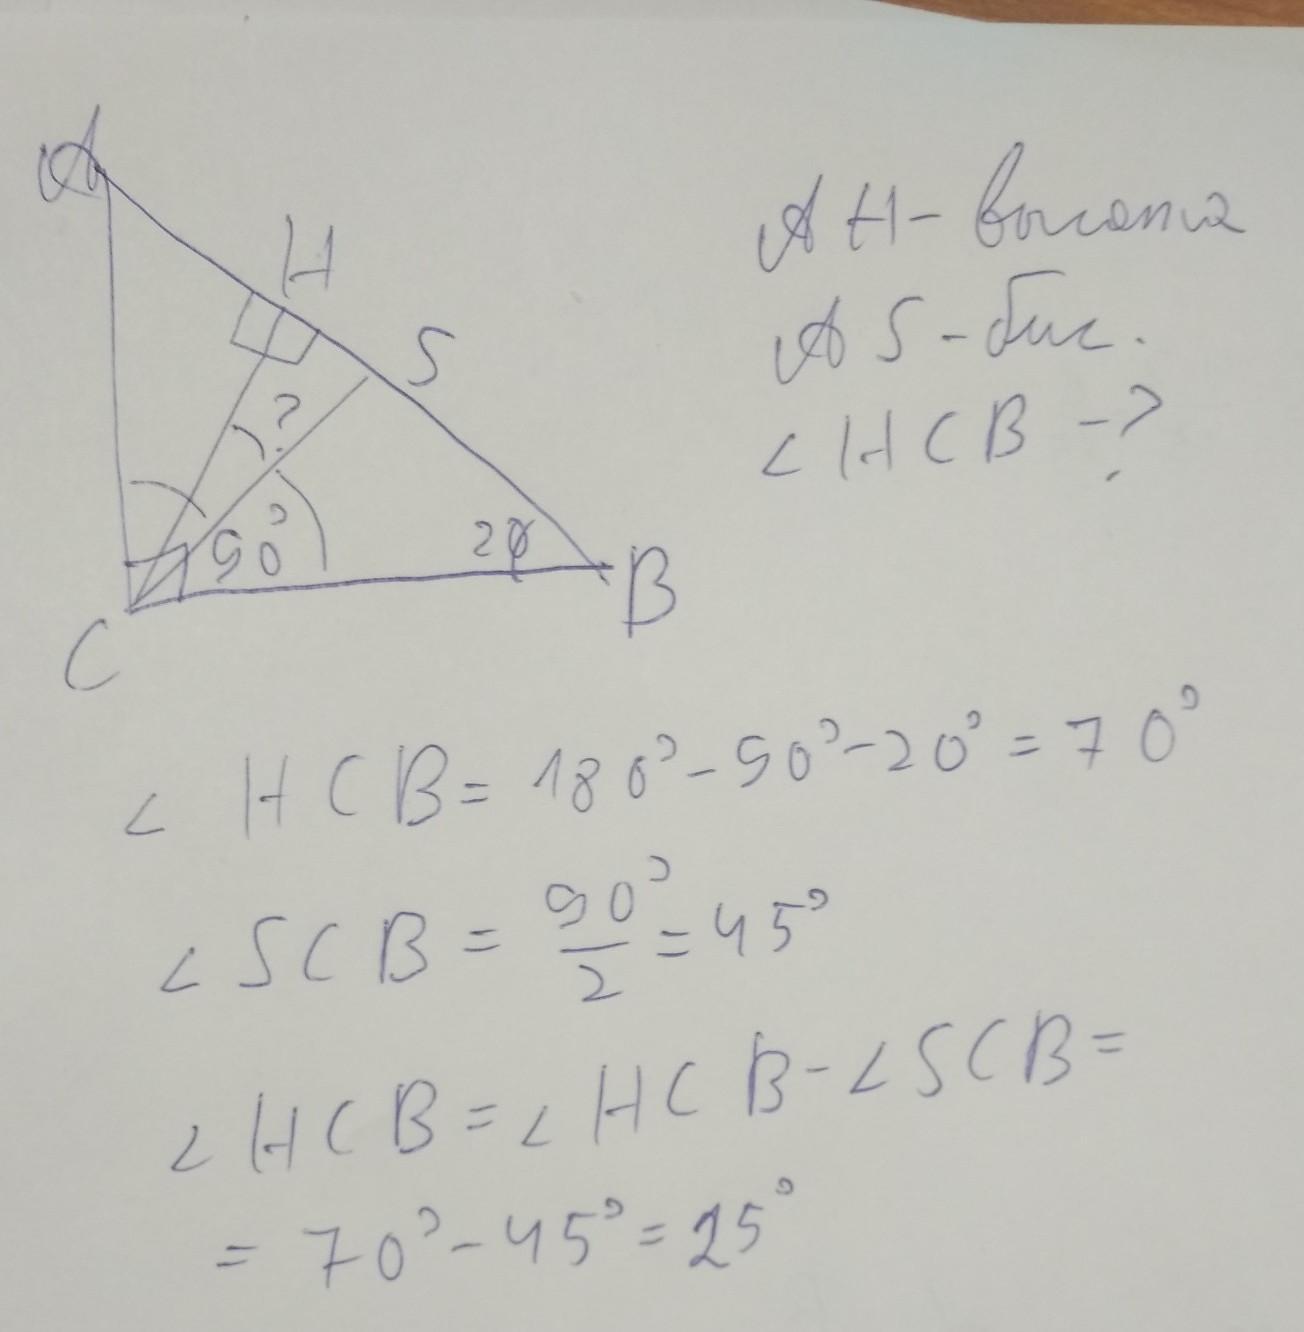 A
H
S
?
90°
20
B
C
AH - высота
AS - бис.
∠HCB - ?
∠HCB = 180° - 90° - 20° = 70°
∠SCB = 90°/2 = 45°
∠HCB = ∠HCB - ∠SCB =
= 70° - 45° = 25°